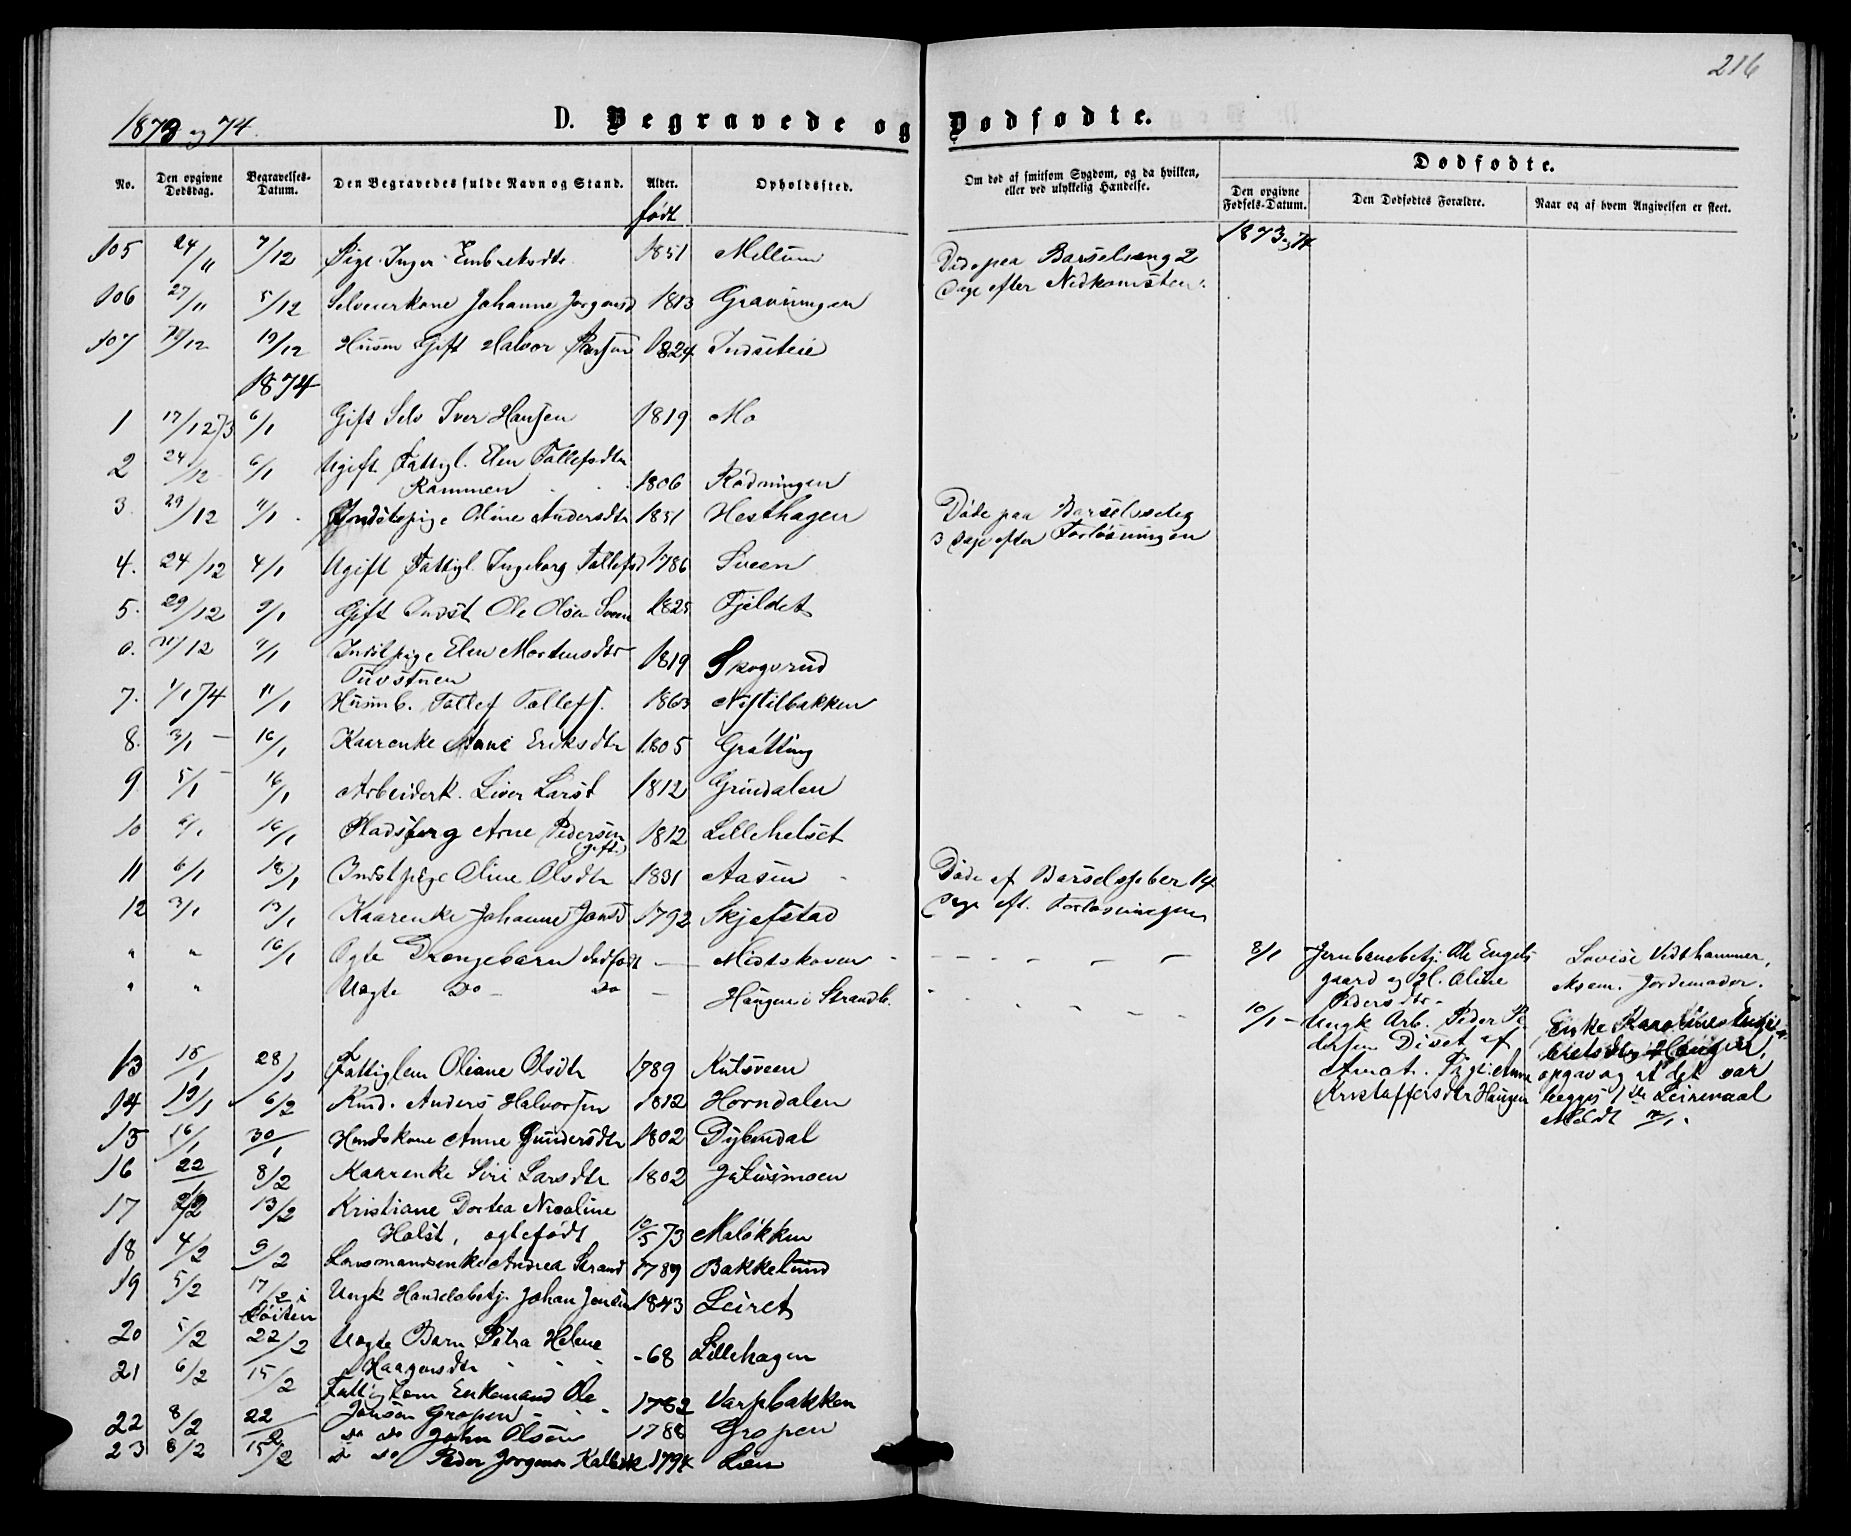 216
1873 og 74.
D. Begravede og Dødfødte.
No. Den opgivne Dødsdag. Begravelses-Datum. Den Begravedes fulde Navn og Stand. Alder. Opholdssted. Om død af smitsom Sygdom, og da hvilken, eller ved ulykkelig Hændelse. Dødfødte.
Den opgivne Fødsels-Datum. Den Dødfødtes Forældre. Naar og af hvem Angivelsen er skeet.
født
1873 og 74
105 24/11 7/12 Pige Inger Embretsdtr 1851 Mellum Døde paa Barselseng 2
Dage efter Nedkomsten.
106 27/11 5/12 Selveierkone Johanne Jørgensd 1813 Gravningen
107 /12 19/12 Husm Gift Halvor 1824 Indseteie
1874
1 17/12 73 6/1 Gift Selv Iver Hansen 1819 Mo
2 24/12 6/1 Ugift Fattigl. Elen Tollefsdtr
Rammen 1806 Rødningen
3 29/12 11/1 Indstpige Oline Andersdtr 1851 Hesthagen Døde paa Barselseng
3 Dage efter Forløsningen
4. 24/12 4/1 Ugift Fattigl Ingeborg Tollefsd 1786 Sveen
5. 29/12 9/1 Gift Indst Ole Olsen Sveen 1825 Fjeldet
6. /12 11/1 Indstpige Elen Mortensdtr 1819 Skogsrud
7. 1/1 74 11/1 Husmb. Tollef Tollefs. 1863 Nistilbakken
8. 3/1 - 16/1 Kaarenke Eriksdtr 1805 Grøtting
9 5/1 - 16/1 Arbeiderk. Larsd 1812 Grindalen
10 6/1 16/1 Arne Pedersen
(gift) 1812 Lillehelset
11 6/1 18/1 Indstpige Oline Olsdtr 1831 Aasen Døde af Barselsfeber 14
Dage eft. Forløsningen
12 3/1 13/1 Kaarenke Johanne Jonsd 1792 Skjefstad
" " 16/1 Ægte Drengebarn dødfødt - Mistskoven - 8/1 Jernbanebetj. Ole Engels
gaard og H. Oline
Pedersdtr. Lovise Vidthammer,
Exam. Jordemoder.
" " Uægte Do Do - Haugen i Strandb. 10/1 - Ungk Arb. Peder Pe
dersen Diset af
Amot. Pige Anne
Kristoffersdtr Haugen Enke Karoline Enge
bretsdtr Haugen,
opgav og at det var
begges 1ste Leiermaal
Meldt
13 15/1 28/1 Fattiglem Oliane Olsdtr 1789 Kutsveen
14 19/1 6/2 Anders Halvorsen 1812 Horndalen
15 16/1 30/1 Anne Gundersdtr 1802 Dybendal
16 22/1 8/2 Kaarenke Siri Larsdtr 1802 Julusmoen
17 2/2 13/2 Kristiane Dortea Nicoline
Holst, ægtefødt 10/5 73 Maløkken
18 4/2 9/2 Lensmandsenke Andrea Strand 1789 Bakkelund
19 5/2 17/2 i
Løiten Ungk Handelsbetj. Johan Jensen 1843 Leiret
20 5/2 22/2 Uægte Barn Petra Helene
Haagensdtr -68 Lillehagen
21 6/2 15/2 Fattiglem Enkemand Ole
Jonsen Gropen 1782 Varpbakken
22 8/2 22/2 do do John Olsen 1788 Gropen
23 8/2 15/2 do do Peder Jørgensen 1794 Løen